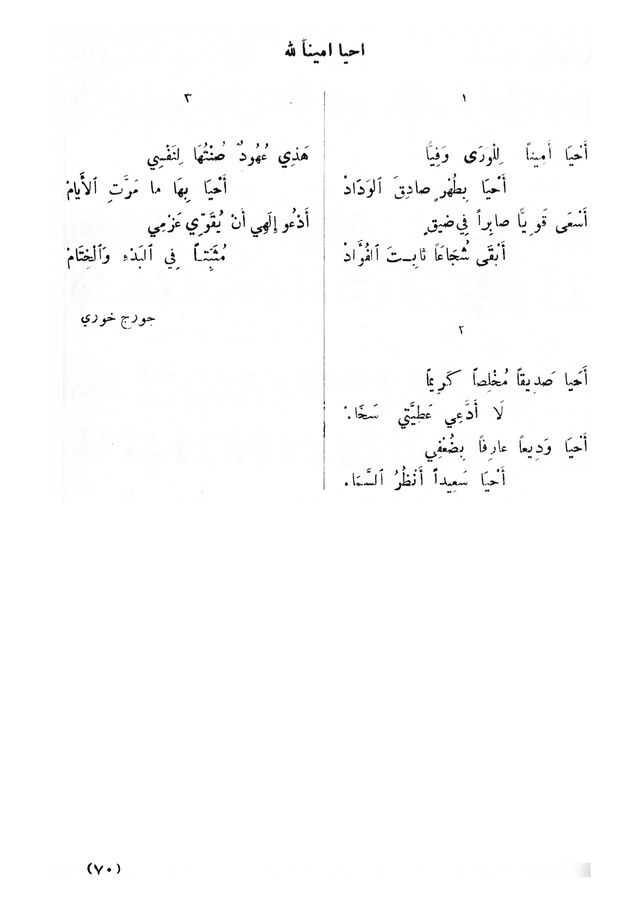 احيا اميناً لله
١
أَحْيَا أَمِيناً لِلْوَرَى وَفِيًّا
أَحْيَا بِطُهْرٍ صَادِقَ ٱلوَدَادْ
أَسْعَى قَوِيًّا صابِراً فِي ضيقٍ
أَبْقَى شُجَاعَاً ثابِتَ ٱلفُؤَادْ
٢
أَحيا صَدِيقاً مُخْلِصاً كَرِيمًا
لَا أَدَّعِي عَطِيَّتِي سَخَاءْ
أَحْيا وَدِيعاً عارِفاً بِضُعْفِي
أَحْيَا سَعِيداً أَنْظُرُ السَّمَاءْ
٣
هَذِي عُهُودٌ صُنْتُهَا لِنَفْسِي
أَحْيَا بِهَا ما مَرَّتِ ٱلأَيامْ
أَدْعُو إِلَهِي أَنْ يُقَوِّي عَزْمِي
مُثَبِّتاً فِي ٱلبَدْءِ وَٱلْخِتَامْ
جورج خوري
(٧٠)